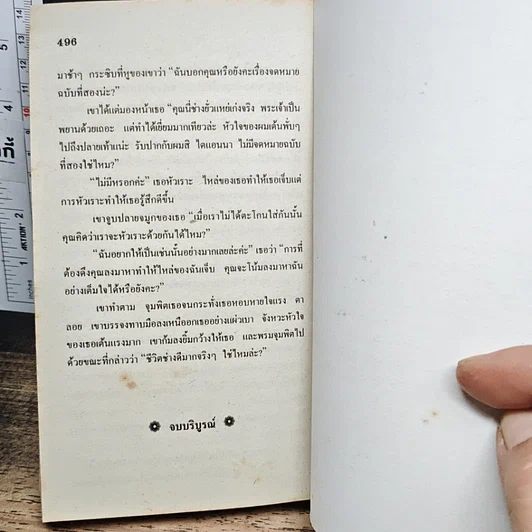 496
มาช้าๆ กระซิบที่หูของเขาว่า “ฉันบอกคุณหรือยังคะเรื่องจดหมาย
ฉบับที่สองน่ะ?”
เขาได้แต่มองหน้าเธอ “คุณนี่ช่างยั่วแหย่เก่งจริง พระเจ้าเป็น
พยานด้วยเถอะ แต่ทำได้เยี่ยมมากเทียวล่ะ หัวใจของผมเต้นพั่บๆ
ไปถึงปลายเท้าแน่ะ รับปากกับผมสิ ไดแอนนา ไม่มีจดหมายฉบับ
ที่สองใช่ไหม?”
“ไม่มีหรอกค่ะ” เธอหัวเราะ ไหล่ของเธอทำให้เธอเจ็บแต่
การหัวเราะทำให้เธอรู้สึกดีขึ้น
เขาจูบปลายจมูกของเธอ “เมื่อเราไม่ได้ตะโกนใส่กันนั้น
คุณคิดว่าเราจะหัวเราะด้วยกันได้ไหม?”
“ฉันอยากให้เป็นเช่นนั้นอย่างมากเลยล่ะค่ะ” เธอว่า “การที่
ต้องดึงคุณลงมาหาทำให้ไหล่ของฉันเจ็บ คุณจะโน้มลงมาหาฉัน
อย่างเต็มใจได้หรือยังคะ?”
เขาทำตาม จุมพิตเธอจนกระทั่งเธอหอบหายใจแรง ตา
ลอย เขาบรรจงทาบมือลงเหนืออกเธออย่างแผ่วเบา จังหวะหัวใจ
ของเธอเต้นแรงมาก เขาก้มลงยิ้มกว้างให้เธอ และพรมจุมพิตไป
ด้วยขณะที่กล่าวว่า “ชีวิตช่างดีมากจริงๆ ใช่ไหมล่ะ?”
จบบริบูรณ์